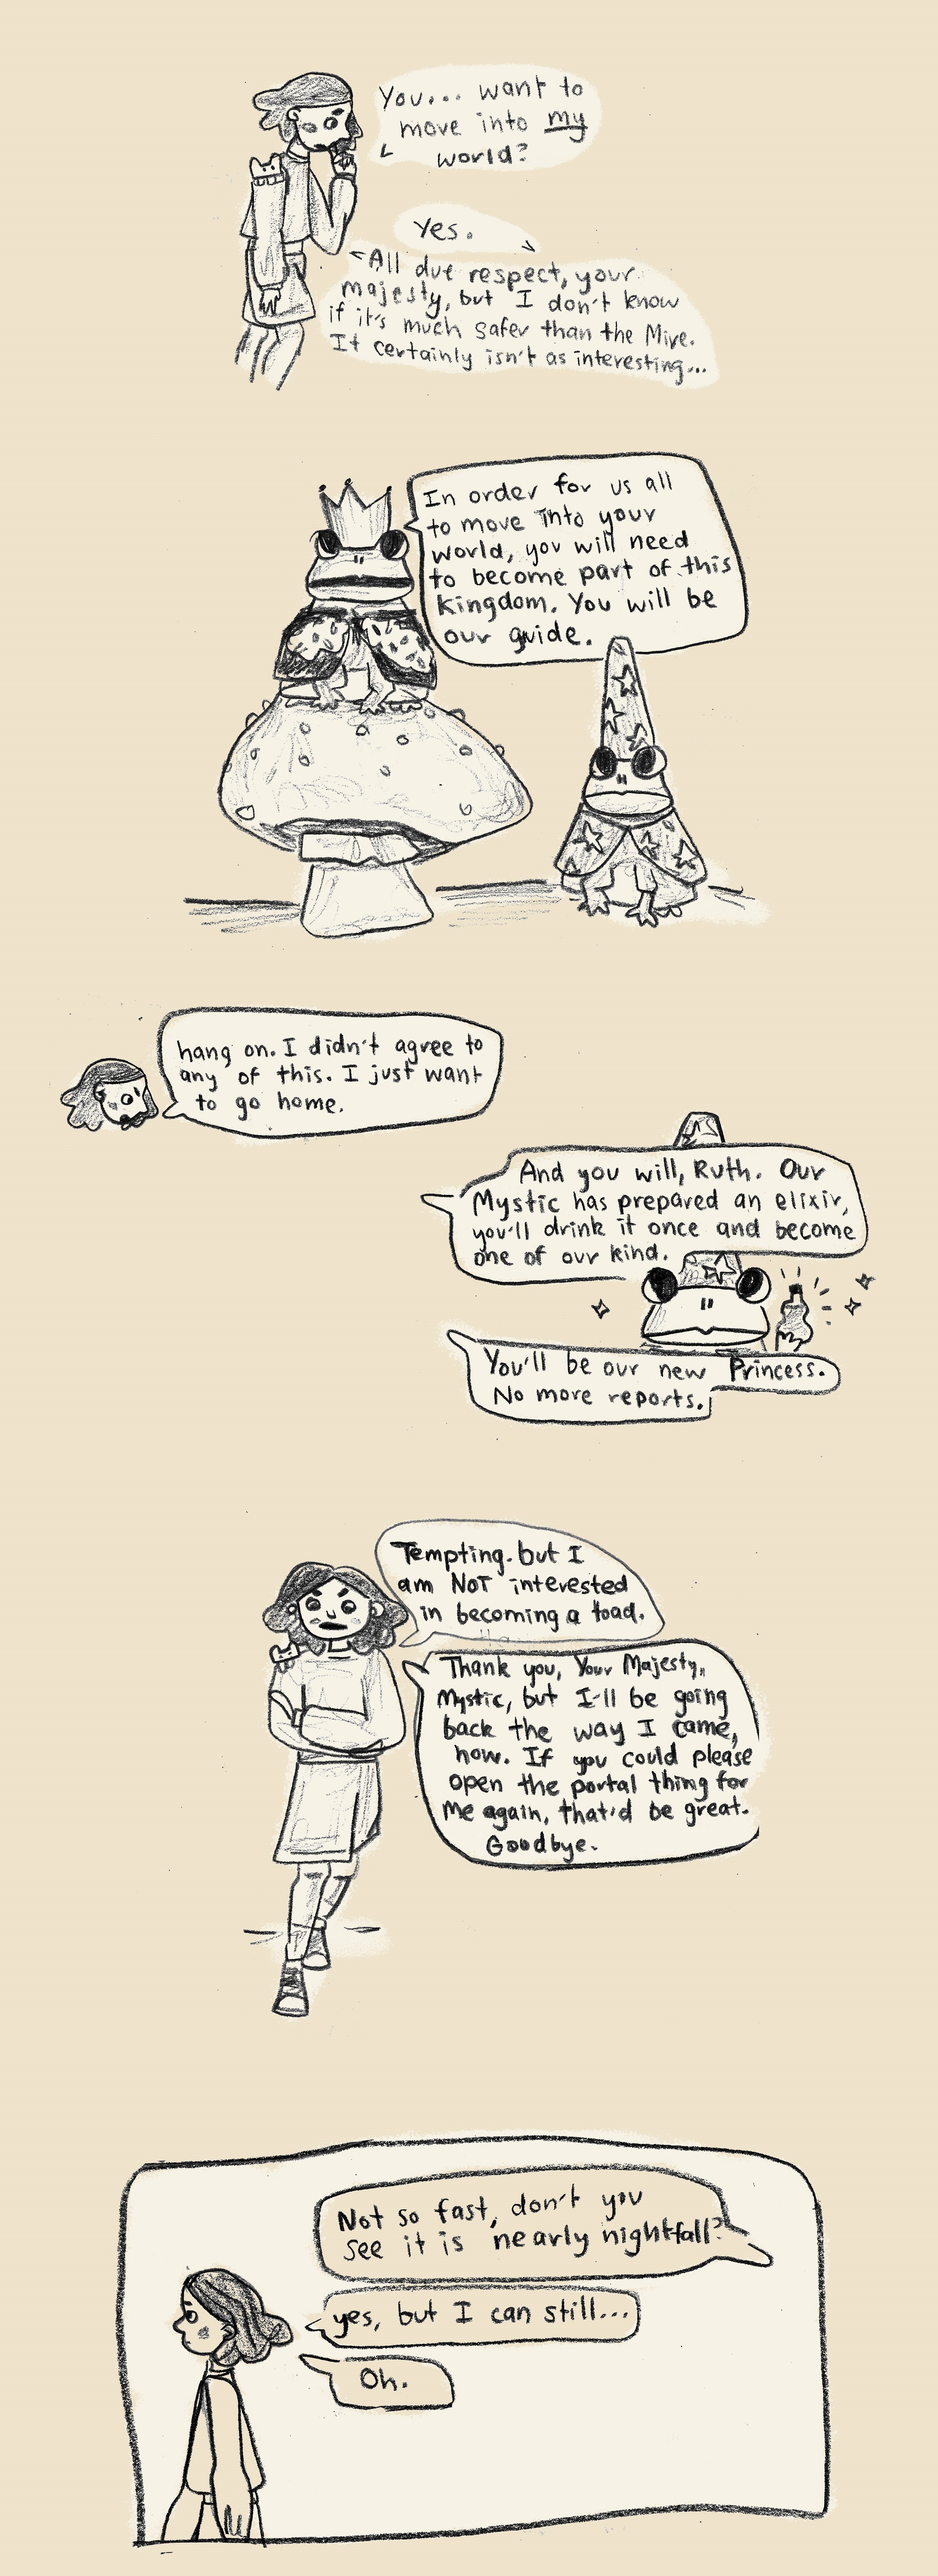 You... want to
move into my
world?
Yes.
All due respect, your
majesty, but I don't know
if it's much safer than the Mire.
It certainly isn't as interesting...
In order for us all
to move into your
world, you will need
to become part of this
kingdom. You will be
our guide.
hang on. I didn't agree to
any of this. I just want
to go home.
And you will, Ruth. Our
Mystic has prepared an elixir,
you'll drink it once and become
one of our kind.
You'll be our new Princess.
No more reports.
Tempting. but I
am NOT interested
in becoming a toad.
Thank you, Your Majesty,
Mystic, but I'll be going
back the way I came,
now. If you could please
open the portal thing for
me again, that'd be great.
Goodbye.
Not so fast, don't you
see it is nearly nightfall?
yes, but I can still...
Oh.